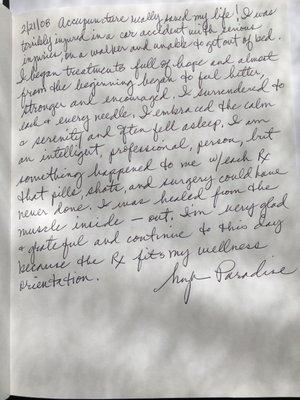 2/21/08 Accupuncture really saved my life! I was
terribly injured in a car accident with serious
injuries, on a walker and unable to get out of bed.
I began treatments full of hope and almost
from the beginning began to feel better,
stronger and encouraged. I surrendered to
each & every needle, I embraced the calm
& serenity and often fell asleep. I am
an intelligent, professional, person, but
something happened to me w/each Rx
that pills, shots, and surgery could have
never done. I was healed from the
muscle inside – out. I'm very glad
& grateful and continue to this day
because the Rx fits my wellness
orientation.
Paradise